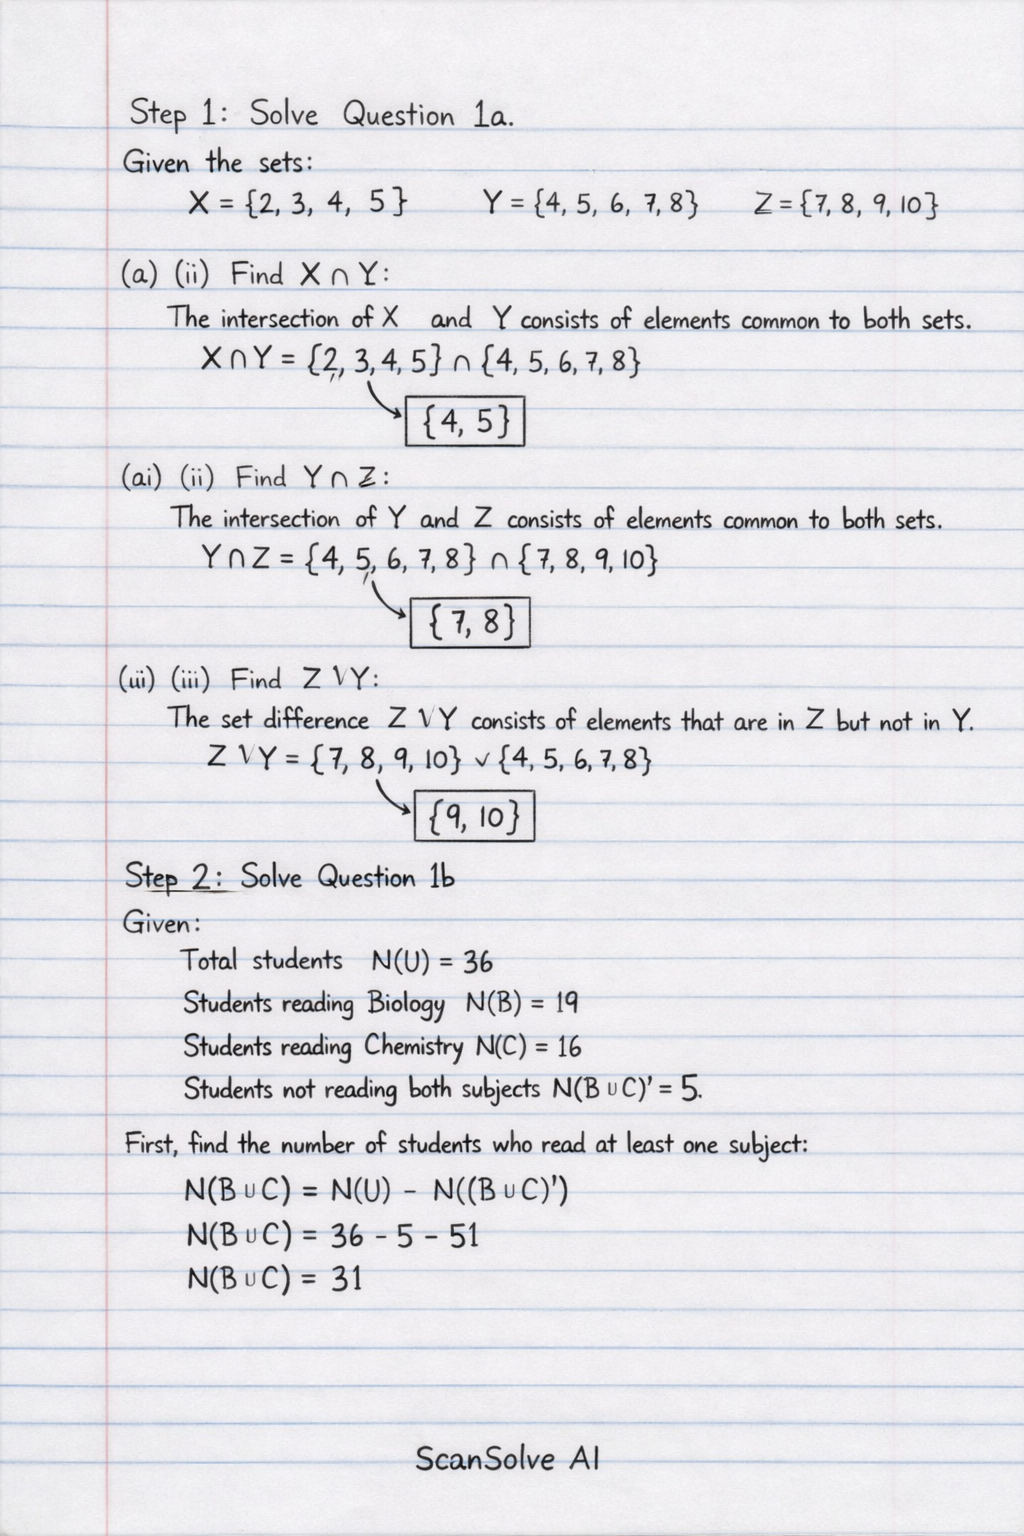 Step 1: Solve Question 1a.
Given the sets:
X = {2, 3, 4, 5} Y = {4, 5, 6, 7, 8} Z = {7, 8, 9, 10}
(a) (ii) Find X ∩ Y:
The intersection of X and Y consists of elements common to both sets.
X ∩ Y = {2, 3, 4, 5} ∩ {4, 5, 6, 7, 8}
{4, 5}
(ai) (ii) Find Y ∩ Z:
The intersection of Y and Z consists of elements common to both sets.
Y ∩ Z = {4, 5, 6, 7, 8} ∩ {7, 8, 9, 10}
{7, 8}
(iii) (iii) Find Z \/ Y:
The set difference Z \/ Y consists of elements that are in Z but not in Y.
Z \/ Y = {7, 8, 9, 10} ∨ {4, 5, 6, 7, 8}
{9, 10}
Step 2: Solve Question 1b
Given:
Total students N(U) = 36
Students reading Biology N(B) = 19
Students reading Chemistry N(C) = 16
Students not reading both subjects N(B ∪ C)' = 5.
First, find the number of students who read at least one subject:
N(B ∪ C) = N(U) - N((B ∪ C)')
N(B ∪ C) = 36 - 5 - 51
N(B ∪ C) = 31
ScanSolve AI